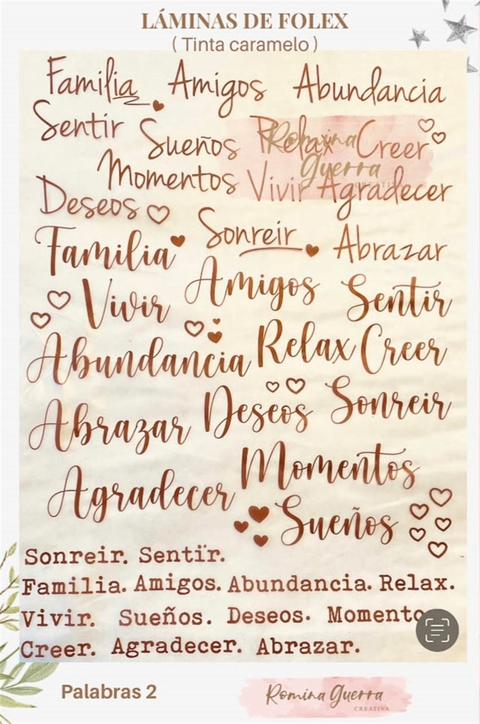 LÁMINAS DE FOLEX
( Tinta caramelo )
Familia Amigos Abundancia
Sentir Sueños Relax Creer
Romina Guerra
Momentos Vivir Agradecer
Deseos Sonreir Abrazar
Familia Amigos Sentir
Vivir
Abundancia Relax Creer
Abrazar Deseos Sonreir
Momentos
Agradecer
Sueños
Sonreir. Sentir.
Familia. Amigos. Abundancia. Relax.
Vivir. Sueños. Deseos. Momento
Creer. Agradecer. Abrazar.
Palabras 2
Romina Guerra
CREATIVA